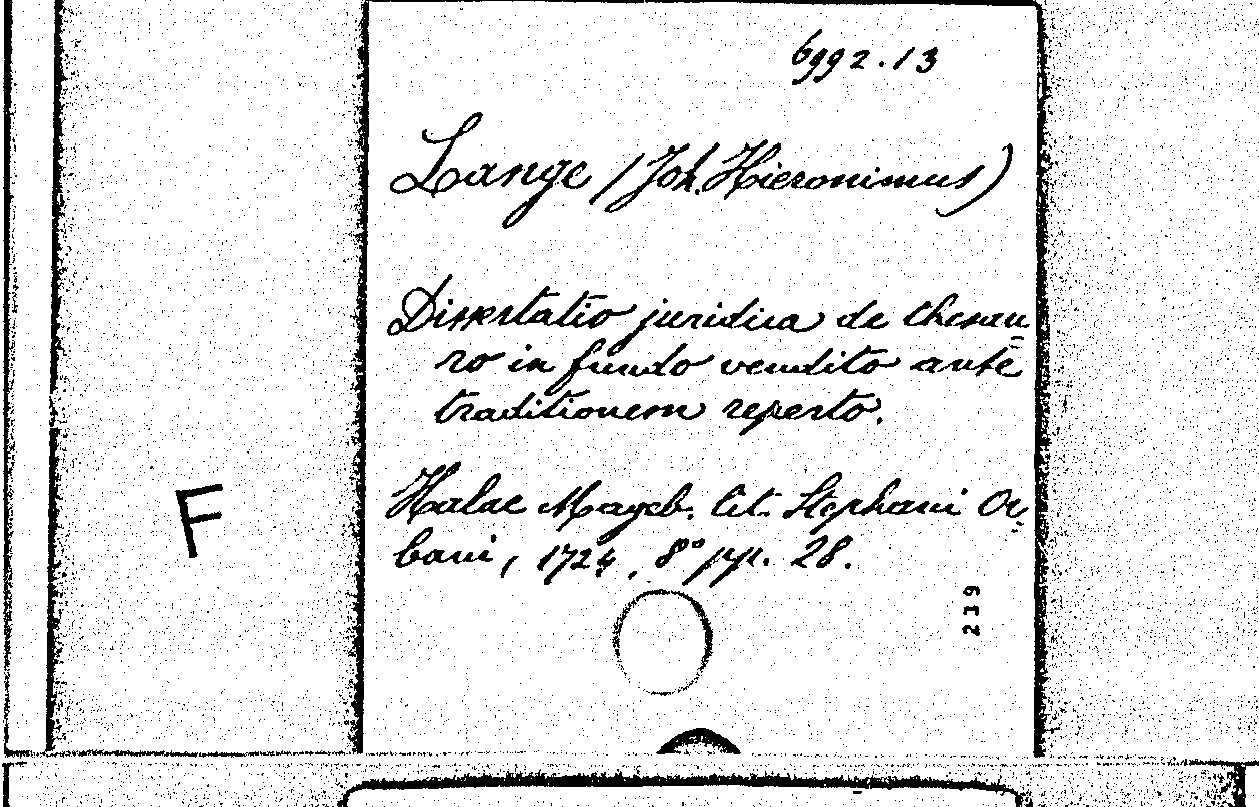 6992.13
Lange (Joh. Hieronimus)
Dissertatio juridica de thesau-
ro in fundo vendito ante
traditionem reperto.
Halae Magdeb. lit. Stephani Or-
bani, 1724, 8° pp. 28.
F
219